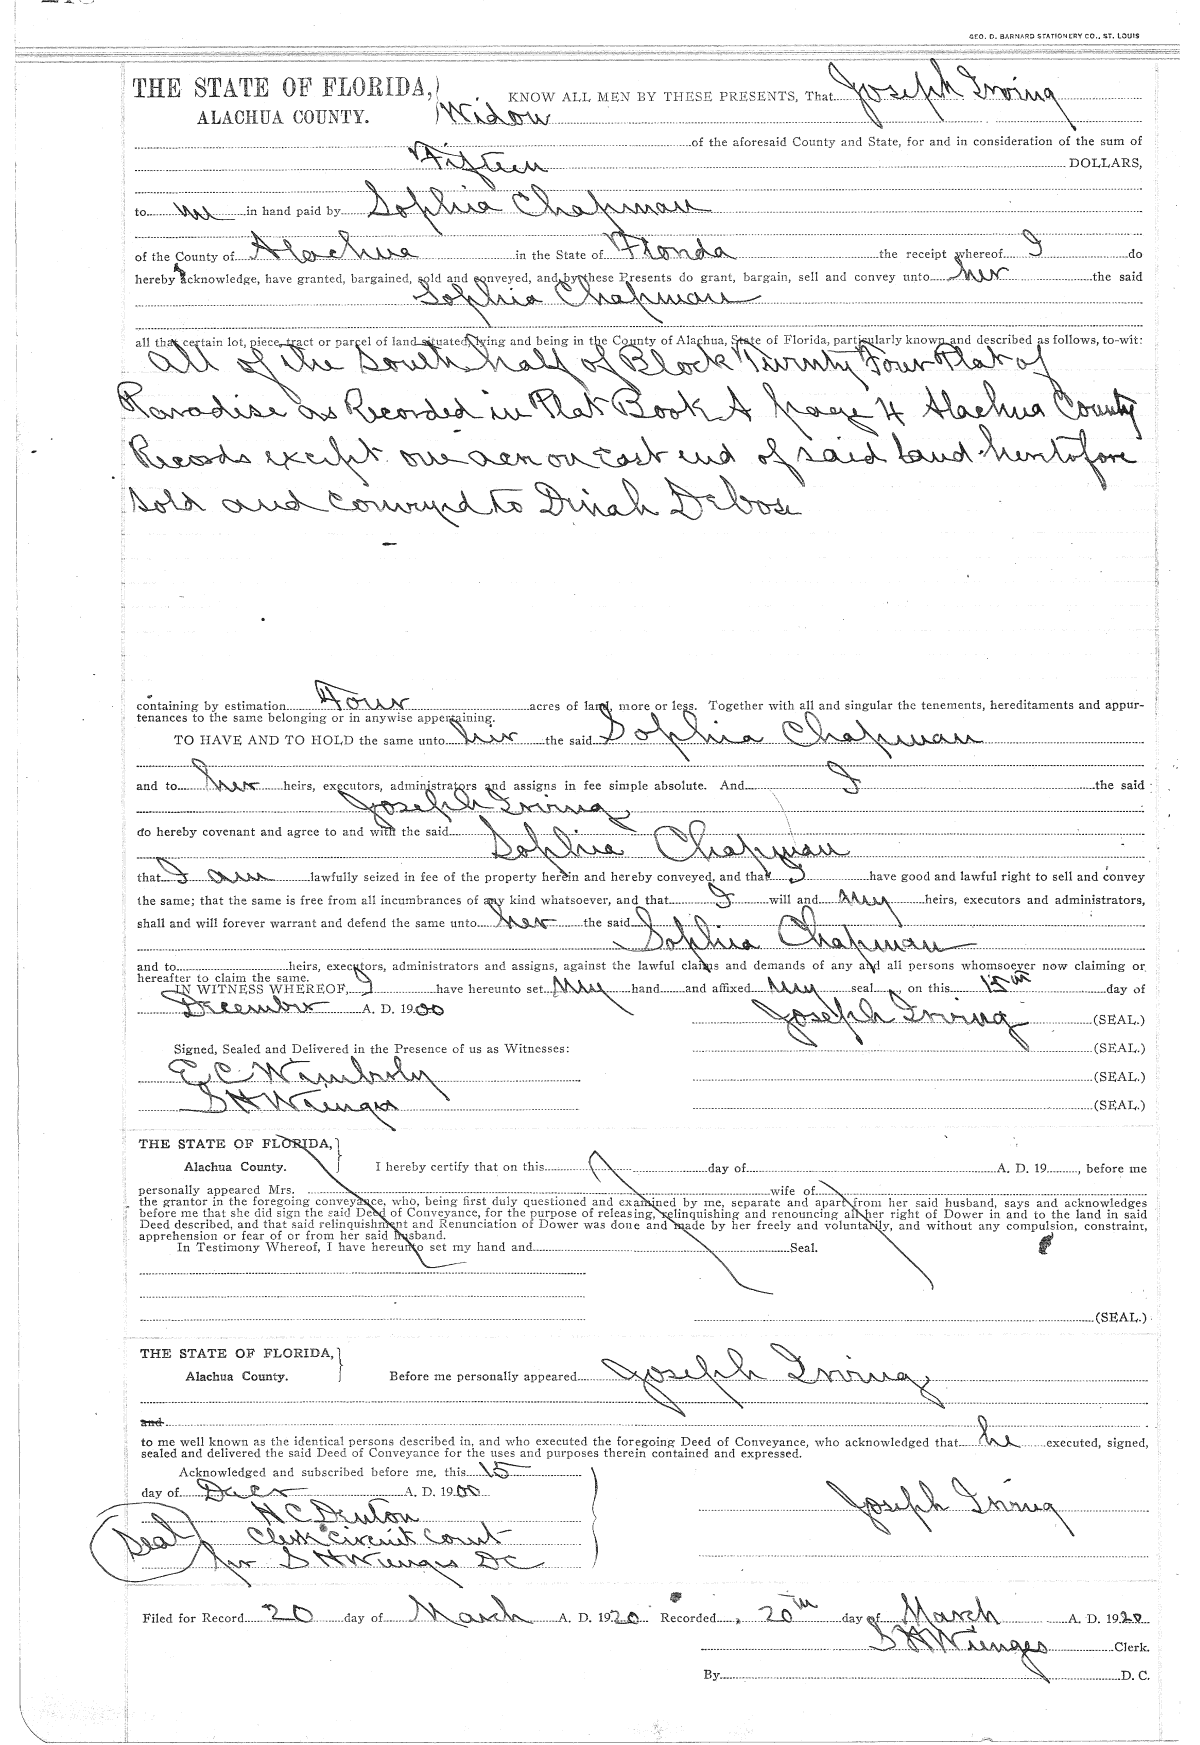 GEO. D. BARNARD STATIONERY CO., ST. LOUIS
THE STATE OF FLORIDA,
ALACHUA COUNTY.
KNOW ALL MEN BY THESE PRESENTS, That Joseph Irving
Widow
of the aforesaid County and State, for and in consideration of the sum of
Fifteen DOLLARS,
to me in hand paid by Sophia Chapman
of the County of Alachua in the State of Florida the receipt whereof I do
hereby acknowledge, have granted, bargained, sold and conveyed, and by these Presents do grant, bargain, sell and convey unto her the said
Sophia Chapman
all that certain lot, piece, tract or parcel of land situated, lying and being in the County of Alachua, State of Florida, particularly known and described as follows, to-wit:
All of the South half of Block Twenty Four Plat of
Paradise as Recorded in Plat Book A page 4 Alachua County
Records except one acre on East end of said land heretofore
sold and conveyed to Dinah Debose
containing by estimation Four acres of land, more or less. Together with all and singular the tenements, hereditaments and appur-
tenances to the same belonging or in anywise appertaining.
TO HAVE AND TO HOLD the same unto her the said Sophia Chapman
and to her heirs, executors, administrators and assigns in fee simple absolute. And I the said
Joseph Irving
do hereby covenant and agree to and with the said
Sophia Chapman
that I am lawfully seized in fee of the property herein and hereby conveyed, and that I have good and lawful right to sell and convey
the same; that the same is free from all incumbrances of any kind whatsoever, and that I will and my heirs, executors and administrators,
shall and will forever warrant and defend the same unto her the said
Sophia Chapman
and to heirs, executors, administrators and assigns, against the lawful claims and demands of any and all persons whomsoever now claiming or
hereafter to claim the same.
IN WITNESS WHEREOF, I have hereunto set my hand and affixed my seal, on this 15th day of
December A. D. 1900
Joseph Irving (SEAL.)
Signed, Sealed and Delivered in the Presence of us as Witnesses: (SEAL.)
E C Wimberly (SEAL.)
S H Wienges (SEAL.)
THE STATE OF FLORIDA,
Alachua County.
I hereby certify that on this day of A. D. 19 , before me
personally appeared Mrs. wife of
the grantor in the foregoing conveyance, who, being first duly questioned and examined by me, separate and apart from her said husband, says and acknowledges
before me that she did sign the said Deed of Conveyance, for the purpose of releasing, relinquishing and renouncing all her right of Dower in and to the land in said
Deed described, and that said relinquishment and Renunciation of Dower was done and made by her freely and voluntarily, and without any compulsion, constraint,
apprehension or fear of or from her said husband.
In Testimony Whereof, I have hereunto set my hand and Seal.
(SEAL.)
THE STATE OF FLORIDA,
Alachua County.
Before me personally appeared Joseph Irving
and
to me well known as the identical persons described in, and who executed the foregoing Deed of Conveyance, who acknowledged that he executed, signed,
sealed and delivered the said Deed of Conveyance for the uses and purposes therein contained and expressed.
Acknowledged and subscribed before me, this 15
day of Decr A. D. 1900
Joseph Irving
H C Denton
Seal
Clerk Circuit Court
per S H Wienges D C
Filed for Record 20 day of March A. D. 1920 Recorded, 20th day of March A. D. 1920
S H Wienges Clerk.
By D. C.